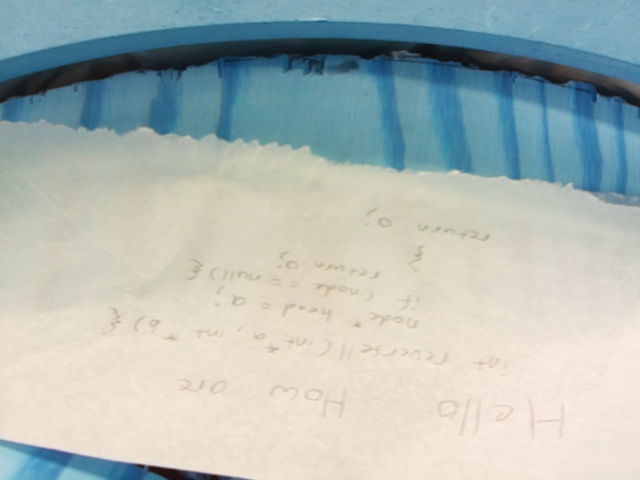 Hello How are
int reversell (int *a, int *b) {
node * head = a;
if (node == null) {
return 0;
}
return 0;